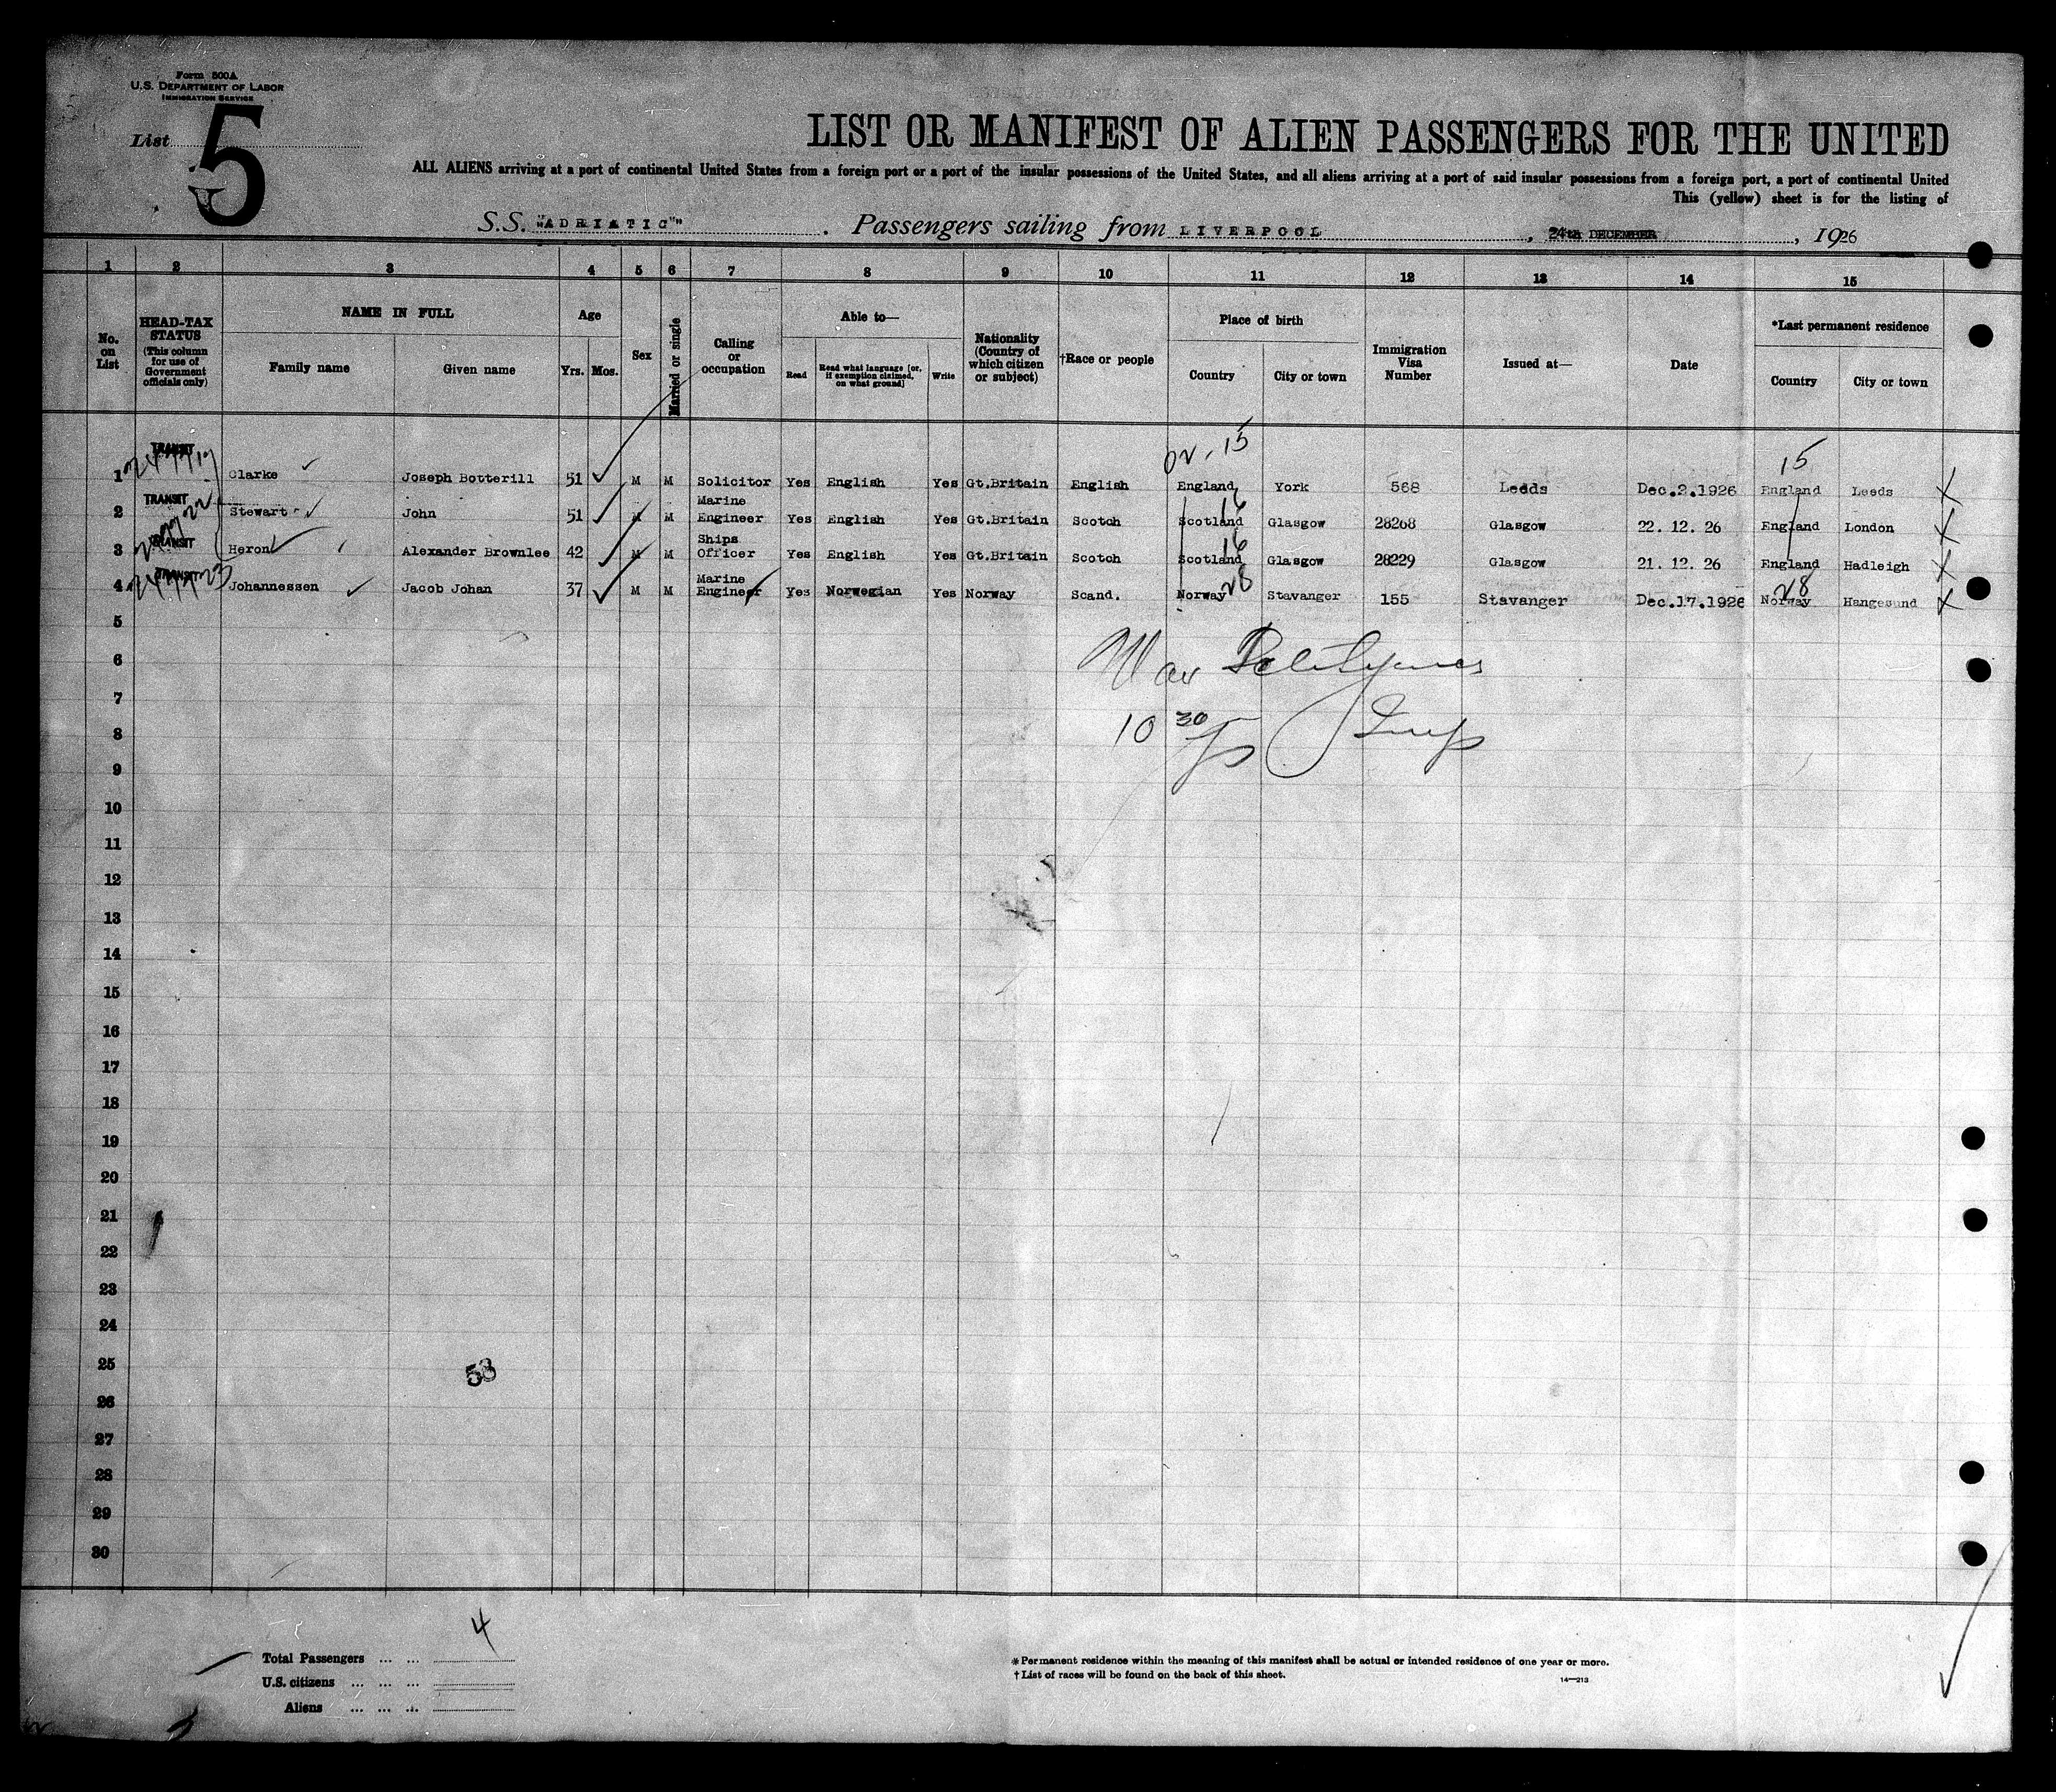 Form 500A
U.S. DEPARTMENT OF LABOR
IMMIGRATION SERVICE
List 5
LIST OR MANIFEST OF ALIEN PASSENGERS FOR THE UNITED
ALL ALIENS arriving at a port of continental United States from a foreign port or a port of the insular possessions of the United States, and all aliens arriving at a port of said insular possessions from a foreign port, a port of continental United
This (yellow) sheet is for the listing of
S.S. "ADRIATIC" . Passengers sailing from LIVERPOOL , 24th DECEMBER , 1926
1 2 3 4 5 6 7 8 9 10 11 12 13 14 15
No. on List
HEAD-TAX STATUS (This column for use of Government officials only)
NAME IN FULL
Family name Given name
Age
Yrs. Mos.
Sex
Married or single
Calling or occupation
Able to—
Read Read what language [or, if exemption claimed, on what ground] Write
Nationality (Country of which citizen or subject)
†Race or people
Place of birth
Country City or town
Immigration Visa Number
Issued at—
Date
*Last permanent residence
Country City or town
15 15
TRANSIT
1 Clarke Joseph Botterill 51 M M Solicitor Yes English Yes Gt.Britain English England York 568 Leeds Dec.2.1926 England Leeds X
TRANSIT 16
2 Stewart John 51 M M Marine Engineer Yes English Yes Gt.Britain Scotch Scotland Glasgow 28268 Glasgow 22. 12. 26 England London X
TRANSIT 16
3 Heron Alexander Brownlee 42 M M Ships Officer Yes English Yes Gt.Britain Scotch Scotland Glasgow 28229 Glasgow 21. 12. 26 England Hadleigh X
TRANSIT 28 28
4 Johannessen Jacob Johan 37 M M Marine Engineer Yes Norwegian Yes Norway Scand. Norway Stavanger 155 Stavanger Dec.17.1926 Norway Hangesund X
5
6
7
10 30
8
9
10
11
12
13
14
15
16
17
18
19
20
21
22
23
24
25 53
26
27
28
29
30
4
Total Passengers ... ...
U.S. citizens ... ... ...
Aliens ... ... ...
* Permanent residence within the meaning of this manifest shall be actual or intended residence of one year or more.
† List of races will be found on the back of this sheet.
14—213